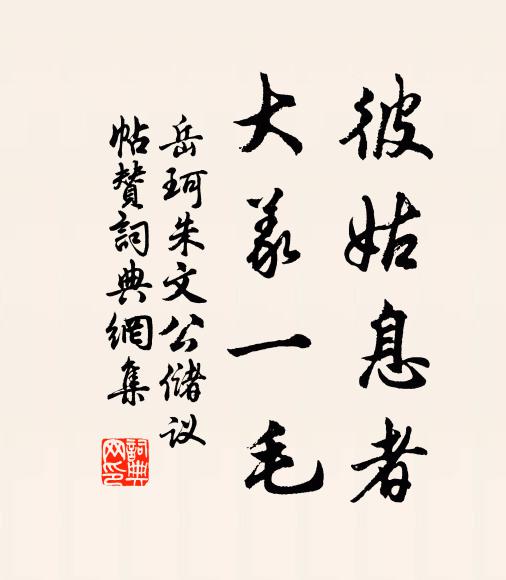 彼姑息者
大义一毛
岳珂朱文公储议
帖賛詞典網集
詞典网印